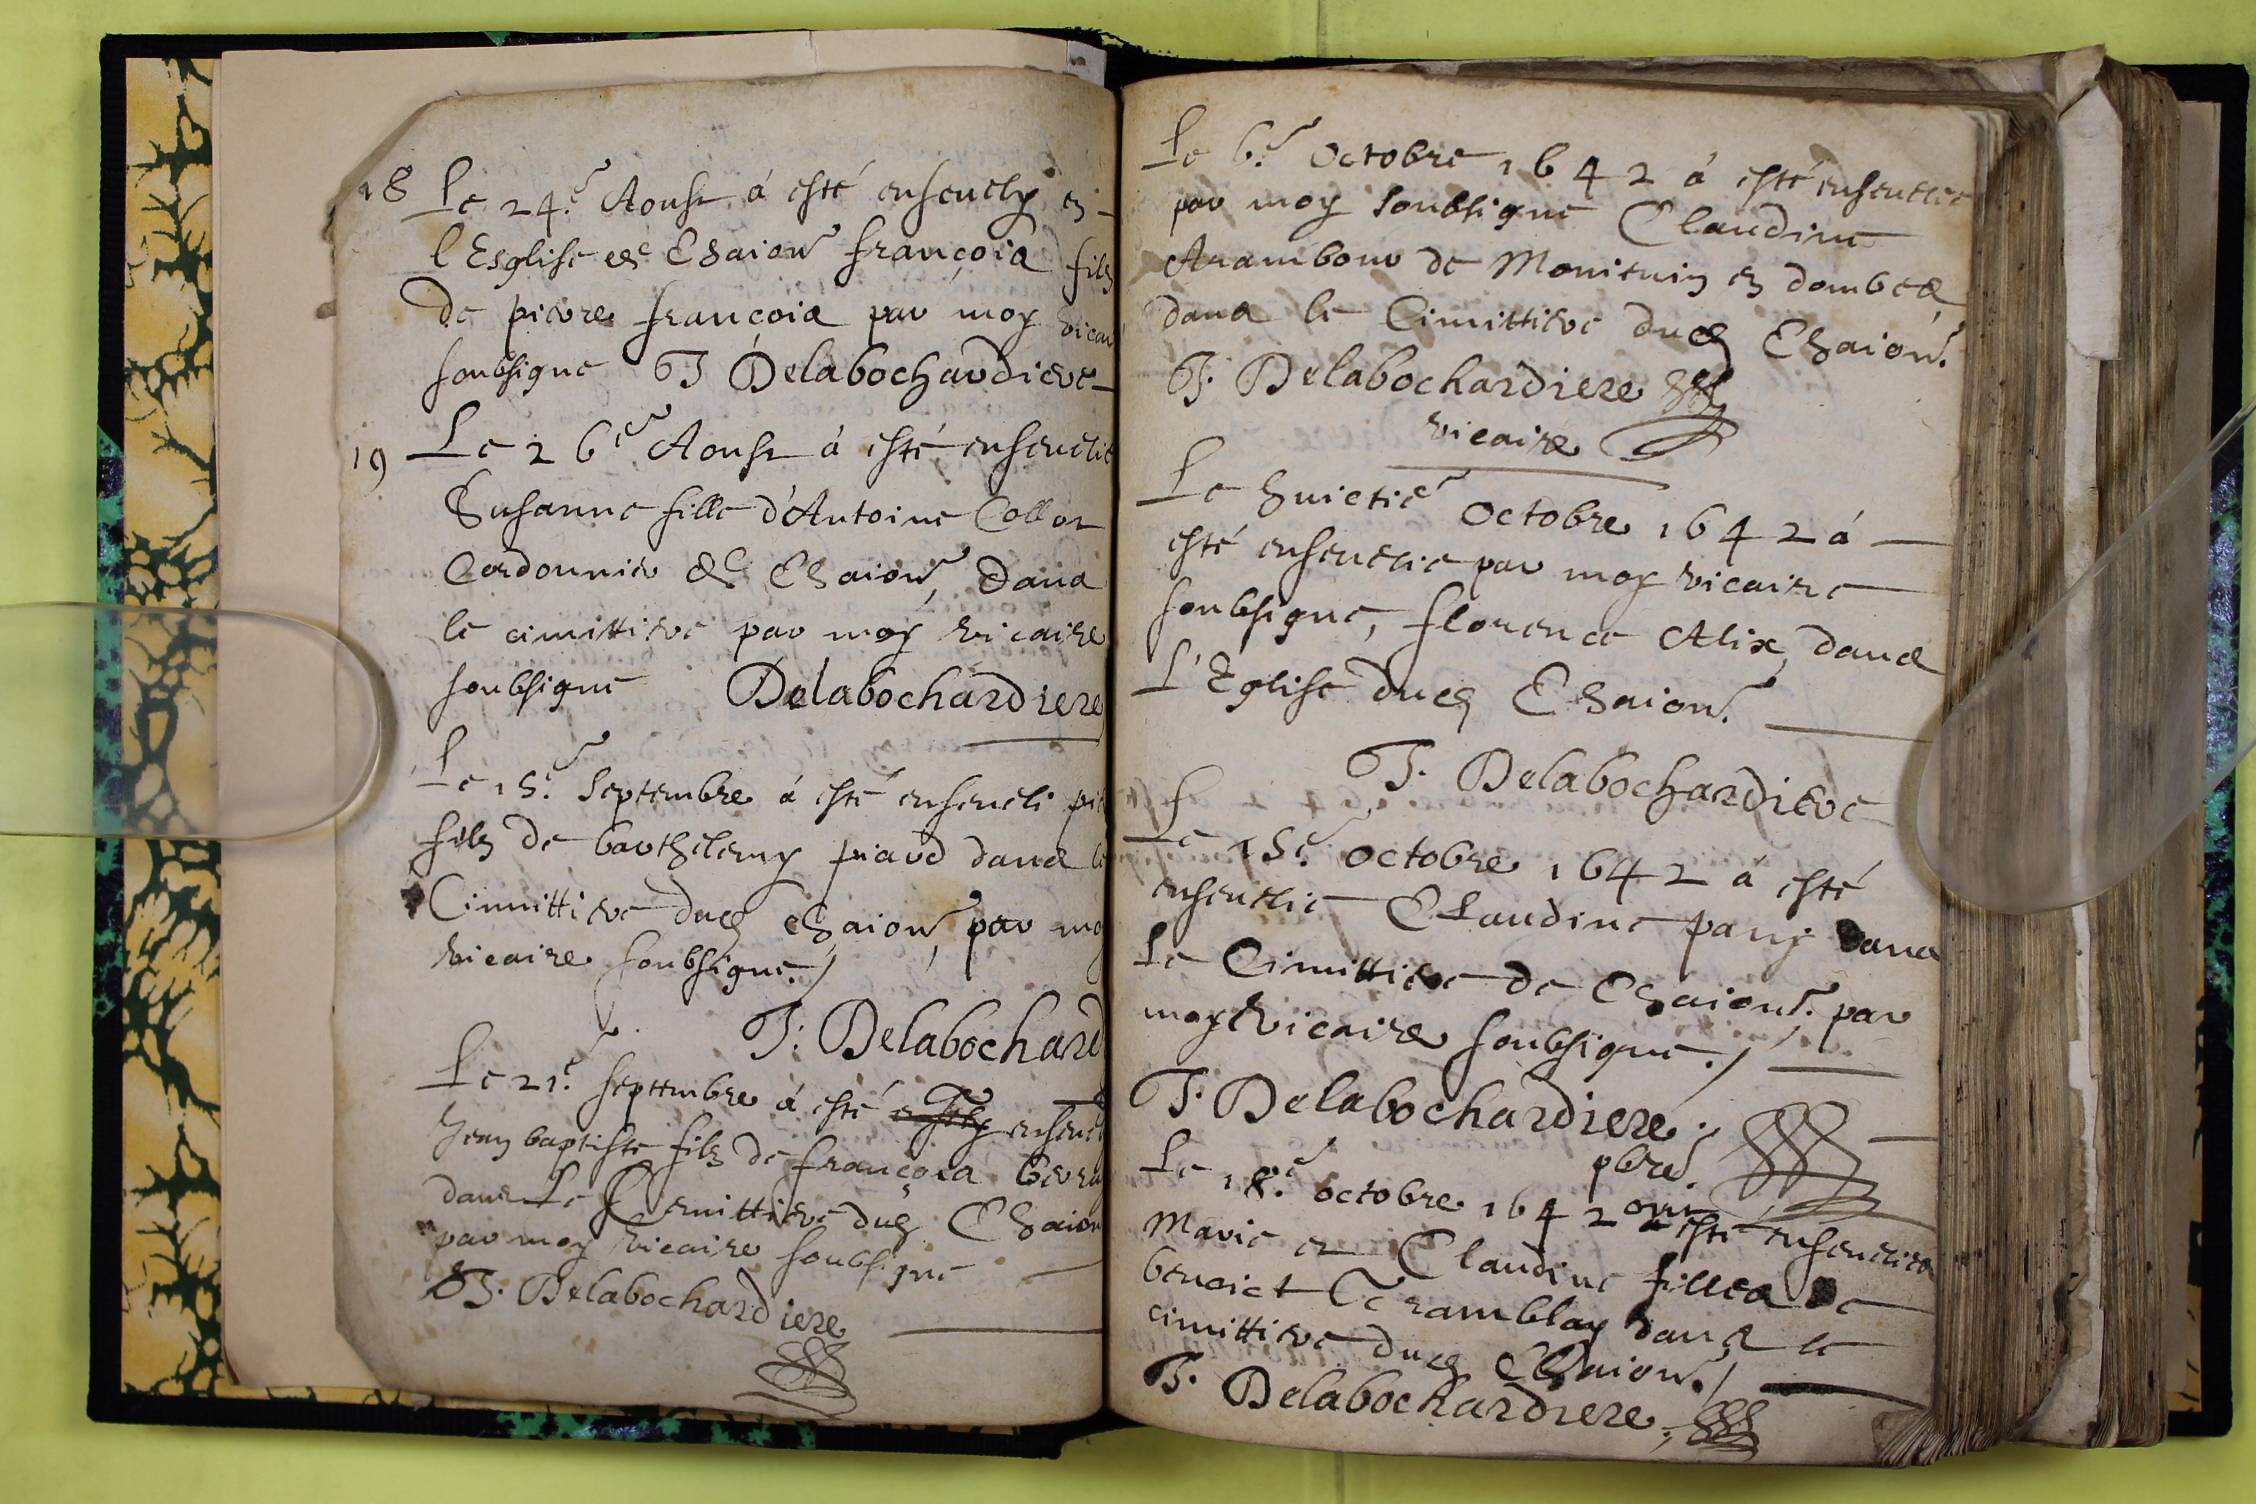 18 Le 24.e Aoust á esté enseuely en
l'Esglise de Chaion françois filz
de pierre françois par moy vicai
soubsigne TJ Delabochardiere
19 Le 26e Aoust á esté enseuelie
Susanne fille d'Antoine Collot
Cordonnier de Chaion, dans
le cimittiere par moy vicaire
soubsigne Delabochardiere
Le 15.e Septembre á esté enseueli pie
filz de barthelemy piard dans le
Cimittiere dud chaion, par mo
vicaire soubsigne./
T: Delabochard
Le 21.e septembre á esté enseuel
Jean baptiste filz de françois
dans Le Cemittiere dud Chaion
par moy vicaire soubsigne
TJ. Delabochardiere
Le 6.e octobre 1642 á esté enseuelie
par moy soubsigne Claudine
Arambour de en dombes
dans le Cimittiere dud Chaion.
TJ. Delabochardiere
vicaire
Le huictie octobre 1642 á
esté enseuelie par moy vicaire
soubsigne, florence Alix, dans
L'Eglise dud Chaion.
TJ. Delabochardiere
Le 15.e octobre 1642 á esté
enseuelie Claudine dans
Le Cimittiere de Chaion. par
moy vicaire soubsigne./
T. Delabochardiere./
pbre.
Le 18.e octobre 1642 ont esté enseuelies
Marie et Claudine filles de
benoict Tramblay dans le
cimittiere dud Chaion./
TJ. Delabochardiere.